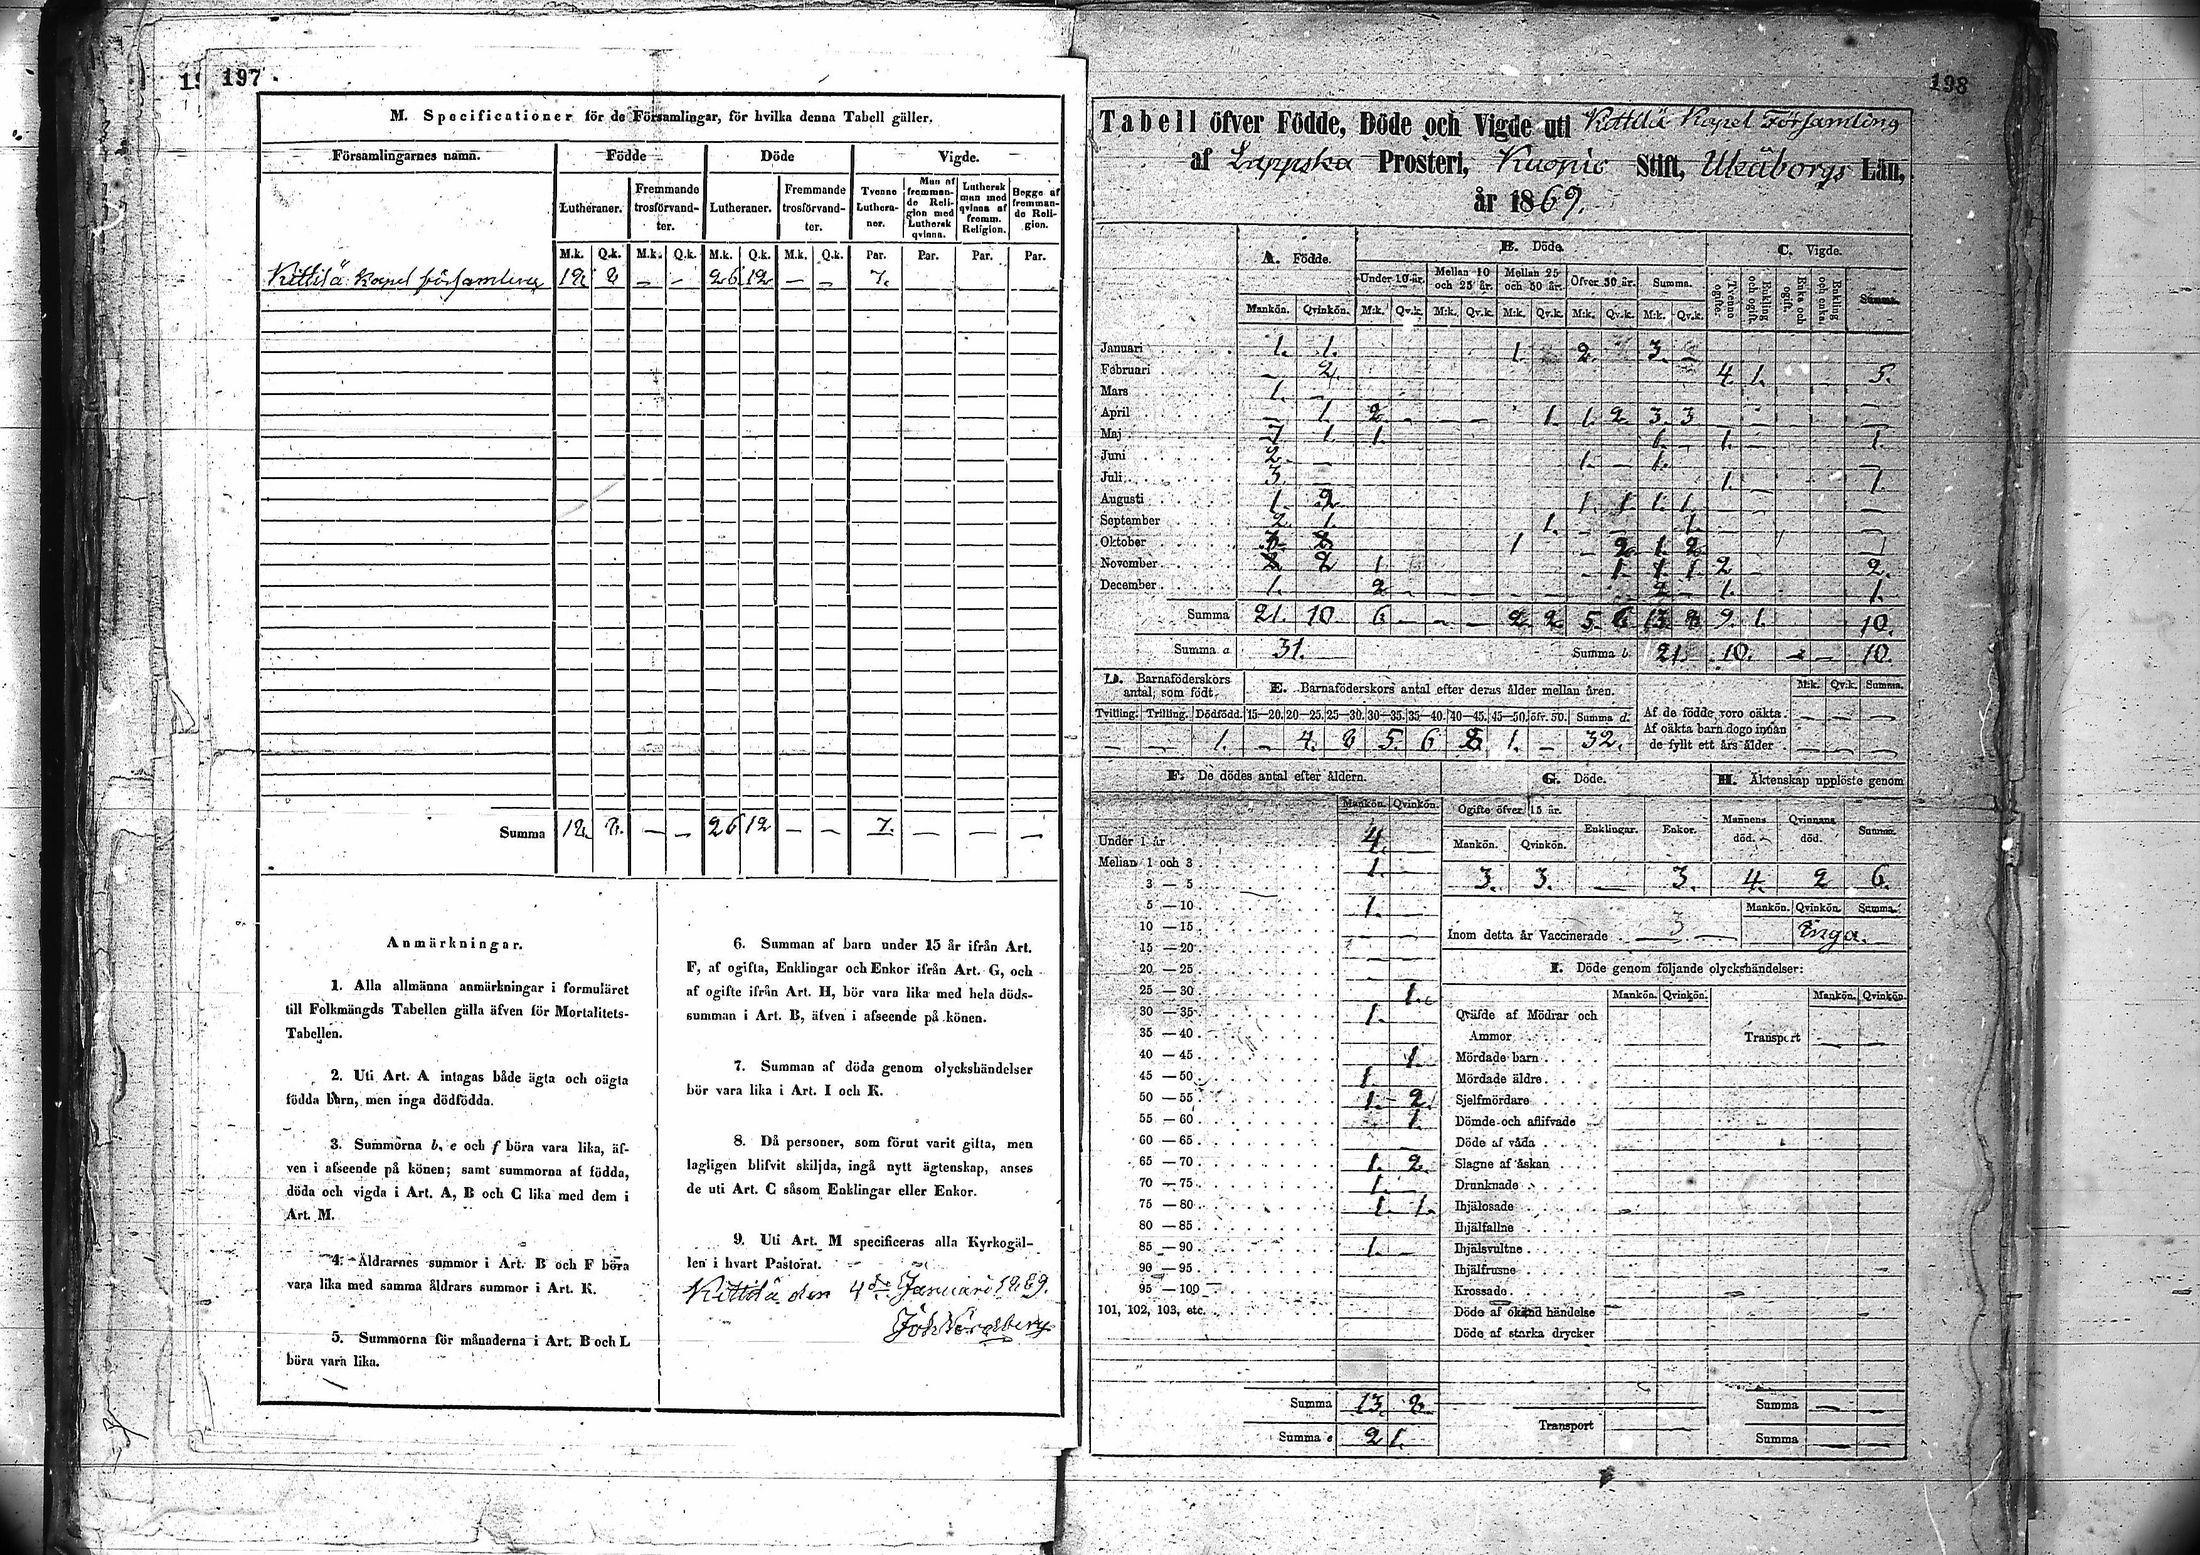 197
M. Specificationer för de Församlingar, för hvilka denna Tabell gäller.
Församlingarnes namn. Födde Döde Vigde.
Lutheraner. Fremmande trosförvandter. Lutheraner. Fremmande trosförvandter. Tvenne Lutheraner. Man af fremmande Religion med Luthersk qvinna. Luthersk man med qvinna af fremm. Religion. Begge af fremmande Religion.
M.k. Q.k. M.k. Q.k. M.k. Q.k. M.k. Q.k. Par. Par. Par. Par.
Kittilä Kapel församling 18 8 — — 26 12 — — 7.
Summa 18. 8. — — 26 12 — — 7. — — —
Anmärkningar.
1. Alla allmänna anmärkningar i formuläret
till Folkmängds Tabellen gälla äfven för Mortalitets-
Tabellen.
2. Uti Art. A intagas både ägta och oägta
födda barn, men inga dödfödda.
3. Summorna b, e och f böra vara lika, äf-
ven i afseende på könen; samt summorna af födda,
döda och vigda i Art. A, B och C lika med dem i
Art. M.
4. Åldrarnes summor i Art. B och F böra
vara lika med samma åldrars summor i Art. K.
5. Summorna för månaderna i Art. B och L
böra vara lika.
6. Summan af barn under 15 år ifrån Art.
F, af ogifta, Enklingar och Enkor ifrån Art. G, och
af ogifte ifrån Art. H, bör vara lika med hela döds-
summan i Art. B, äfven i afseende på könen.
7. Summan af döda genom olyckshändelser
bör vara lika i Art. I och K.
8. Då personer, som förut varit gifta, men
lagligen blifvit skiljda, ingå nytt ägtenskap, anses
de uti Art. C såsom Enklingar eller Enkor.
9. Uti Art. M specificeras alla Kyrkogäl-
len i hvart Pastorat.
Kittilä den 4de Januari 1869.
198
Tabell öfver Födde, Döde och Vigde uti Kittilä Kapel Församling
af Lappska Prosteri, Kuopio Stift, Uleåborgs Län,
år 1869.
A. Födde. B. Döde. C. Vigde.
Under 10 år. Mellan 10 och 25 år. Mellan 25 och 50 år. Öfver 50 år. Summa. Tvenne ogifte. Enkling och ogift. Enka och ogift. Enkling och enka. Summa.
Mankön. Qvinkön. M:k. Qv.k. M:k. Qv.k. M:k. Qv.k. M:k. Qv.k. M:k. Qv.k.
Januari 1. 1. 1. 2. 3. —
Februari — 2. 4. 1. 5.
Mars 1. —
April — 1. 2. — — — 1. 1. 2. 3. 3
Maj 7 1. 1. 1. — 1. — 1.
Juni 2. — 1. — 1.
Juli 3 — 1. — 1.
Augusti 1. 2. 1 1. 1. 1.
September 2. 1. 1. 1.
Oktober 1 — 2. 1. 2.
November 2 1 — 1. 1. 1. 2 2.
December 1. — 2 — 2 — 1. 1.
Summa 21. 10. 6 — — — 2. 2. 5. 6 13. 8 9. 1. 10.
Summa a 31. Summa b 21 10. — — 10.
D. Barnaföderskors antal, som födt. E. Barnaföderskors antal efter deras ålder mellan åren. M:k. Qv.k. Summa.
Tvilling. Trilling. Dödfödd. 15—20. 20—25. 25—30. 30—35. 35—40. 40—45. 45—50. öfv. 50. Summa d.
— — 1. — 4. 8 5. 6 8. 1. — 32.
Af de födde voro oäkta — — —
Af oäkta barn dogo innan
de fyllt ett års ålder — — —
F. De dödes antal efter åldern. G. Döde. H. Äktenskap upplöste genom
Mankön. Qvinkön. Ogifte öfver 15 år. Enklingar. Enkor. Mannens död. Qvinnans död. Summa.
Mankön. Qvinkön.
3. 3. — 3. 4. 2 6.
Mankön. Qvinkön. Summa.
Inom detta år Vaccinerade 3 — Inga.
Under 1 år 4.
Mellan 1 och 3 1.
3 — 5
5 — 10 1.
10 — 15
15 — 20
20 — 25
25 — 30 1.
30 — 35 1.
35 — 40
40 — 45 1.
45 — 50 1.
50 — 55 1. 2.
55 — 60 1.
60 — 65
65 — 70 1. 2.
70 — 75 1.
75 — 80 1. 1.
80 — 85
85 — 90 1. —
90 — 95
95 — 100
101, 102, 103, etc.
Summa 13. 8.
Summa e 21.
I. Döde genom följande olyckshändelser:
Mankön. Qvinkön. Mankön. Qvinkön.
Qväfde af Mödrar och
Ammor Transport — —
Mördade barn
Mördade äldre
Sjelfmördare
Dömde och aflifvade
Döde af våda
Slagne af åskan
Drunknade
Ihjälosade
Ihjälfallne
Ihjälsvultne
Ihjälfrusne
Krossade
Döde af okänd händelse
Döde af starka drycker
Summa — —
Transport
Summa — —